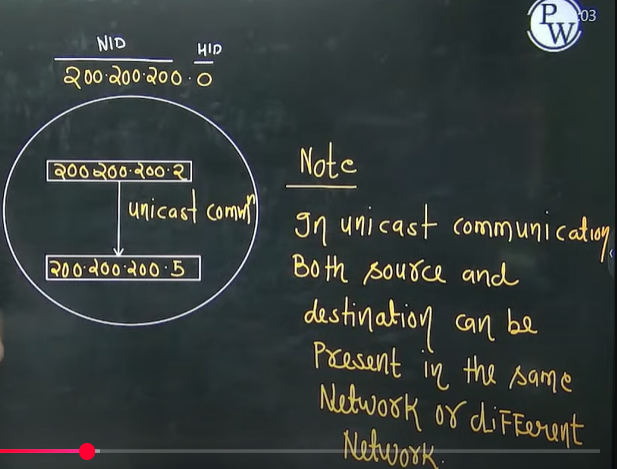 PW
:03
NID HID
200.200.200.0
200.200.200.2
unicast commⁿ
200.200.200.5
Note
In unicast communication
Both source and
destination can be
Present in the same
Network or different
Network.